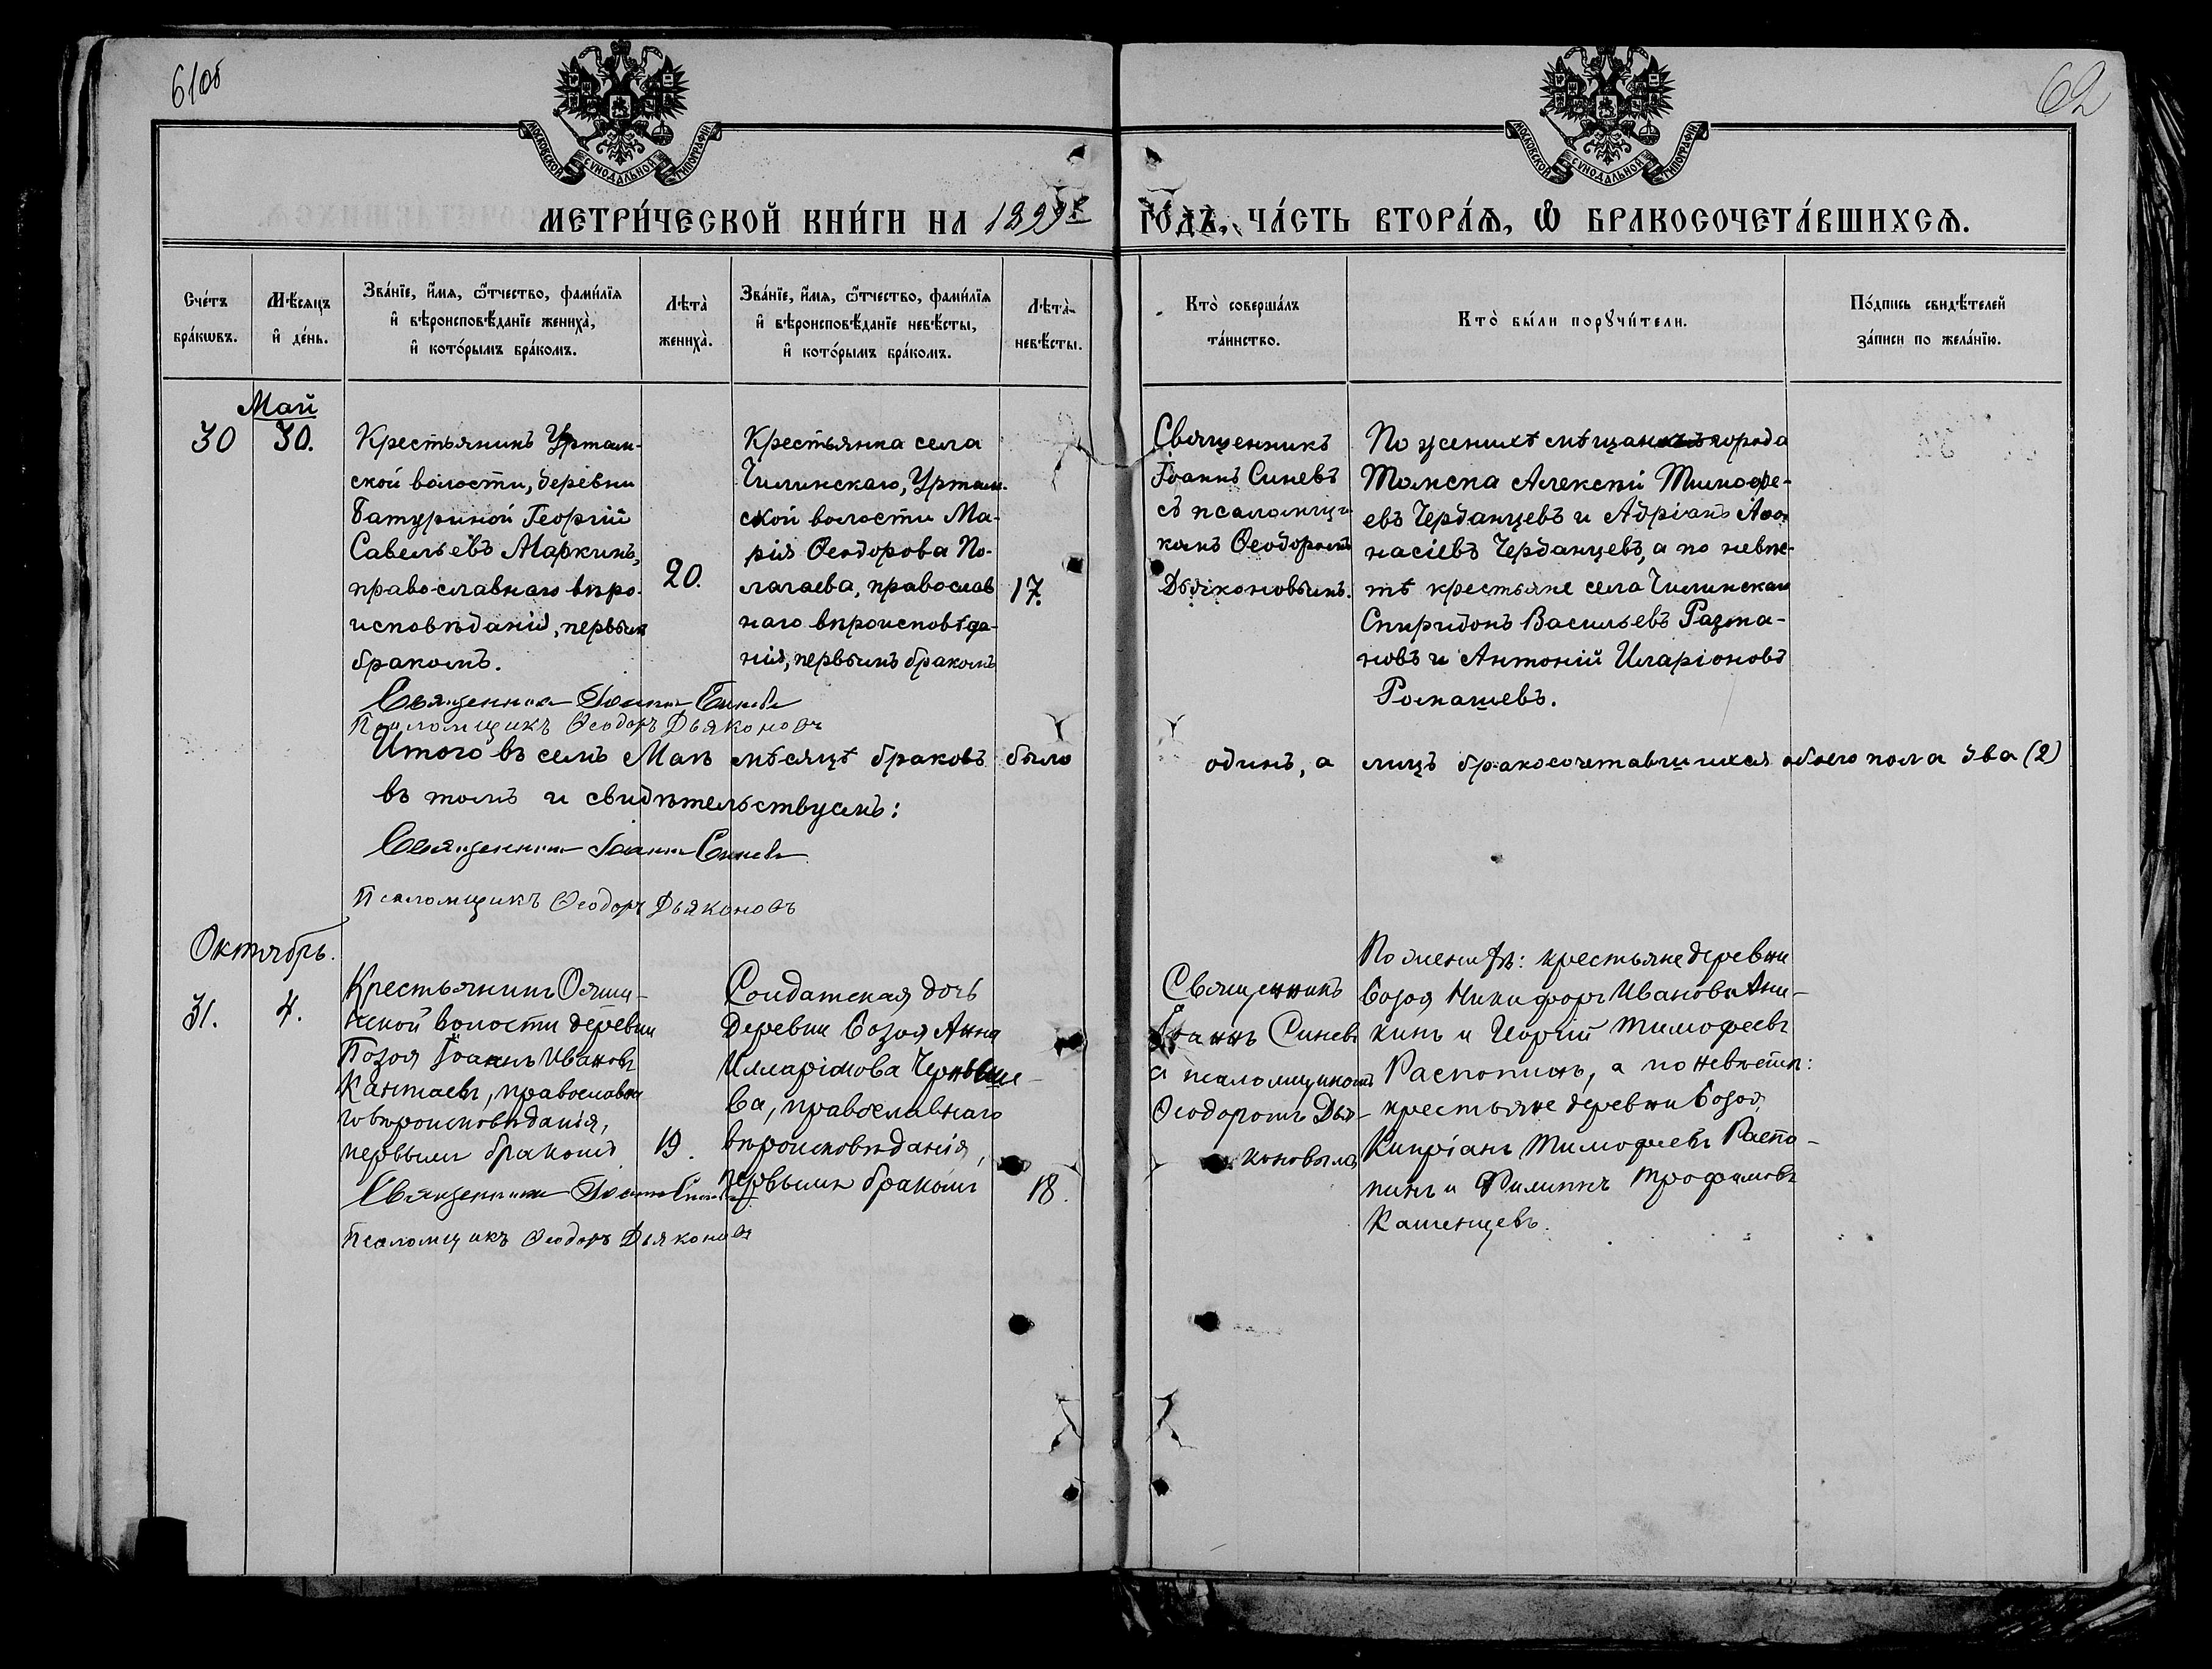 61об
62
МОСКОВСКОЙ СѴНОДАЛЬНОЙ ТИПОГРАФІИ
МОСКОВСКОЙ СѴНОДАЛЬНОЙ ТИПОГРАФІИ
МЕТРИ́ЧЕСКОЙ КНИ́ГИ НА 1899 г.
ГОДЪ, ЧА́СТЬ ВТОРА́Ѧ, Ѿ БРАКОСОЧЕТА́ВШИХСѦ.
Сче́тъ
бра́кωвъ.
Мѣ́сяцъ
и҆ де́нь.
Зва́нїе, и҆́мя, ѻ҆́тчество, фами́лїя
и҆ вѣроисповѣ́данїе жениха̀,
и҆ кото́рымъ бра́комъ.
Лѣта̀
жениха̀.
Зва́нїе, и҆́мя, ѻ҆́тчество, фами́лїя
и҆ вѣроисповѣ́данїе невѣ́сты,
и҆ кото́рымъ бра́комъ.
Лѣта̀
невѣ́сты.
Кто̀ соверша́лъ
та́инство.
Кто̀ бы́ли порꙋчи́тели.
По́дпись свидѣ́телей
за́писи по жела́нїю.
Май
30
30.
Крестьянинъ Уртам-
ской волости, деревни
Батуриной Георгій
Савельевъ Маркинъ,
православнаго вѣро-
исповѣданія, первымъ
бракомъ.
20.
Крестьянка села
Чилинскаго, Уртам-
ской волости Ма-
рія Ѳеодорова По-
лагаева, православ
наго вѣроисповѣда-
нія, первымъ бракомъ
17.
Священникъ
Іоаннъ Синевъ
съ псаломщи
комъ Ѳеодоромъ
Дьяконовымъ.
По женихѣ мѣщане города
Томска Алексѣй Тимофе-
евъ Черданцевъ и Адріанъ Аѳо
насіевъ Черданцевъ, а по невѣс-
тѣ крестьяне села Чилинскаго
Спиридонъ Васильевъ Разма-
новъ и Антоній Иларіоновъ
Ромашевъ.
Священникъ Іоаннъ Синевъ
Псаломщикъ Ѳеодоръ Дьяконовъ
Итого въ семъ Маѣ мѣсяцѣ браковъ было
одинъ, а лицъ бракосочетавшихся обоего пола два (2)
въ томъ и свидѣтельствуемъ:
Священникъ Іоаннъ Синевъ
Псаломщикъ Ѳеодоръ Дьяконовъ
Октябрь.
31.
4.
Крестьянинъ Ояши-
нской волости деревни
Позоя Іоаннъ Ивановъ
Кантаевъ, православна
го вѣроисповѣданія,
первымъ бракомъ
19.
Солдатская дочь
деревни Возоя Анна
Илларіонова Черныше-
ва, православнаго
вѣроисповѣданія,
первымъ бракомъ
18.
Священникъ
Іоаннъ Синевъ
съ псаломщикомъ
Ѳеодоромъ Дья-
коновымъ
По женихѣ: крестьяне деревни
Возоя Никифоръ Ивановъ Ани-
кинъ и Георгій Тимофеевъ
Распопинъ, а по невѣстѣ:
крестьяне деревни Возоя
Кипріанъ Тимофеевъ Распо-
пинъ и Филиппъ Трофимовъ
Кашенцевъ.
Священникъ Іоаннъ Синевъ
Псаломщикъ Ѳеодоръ Дьяконовъ